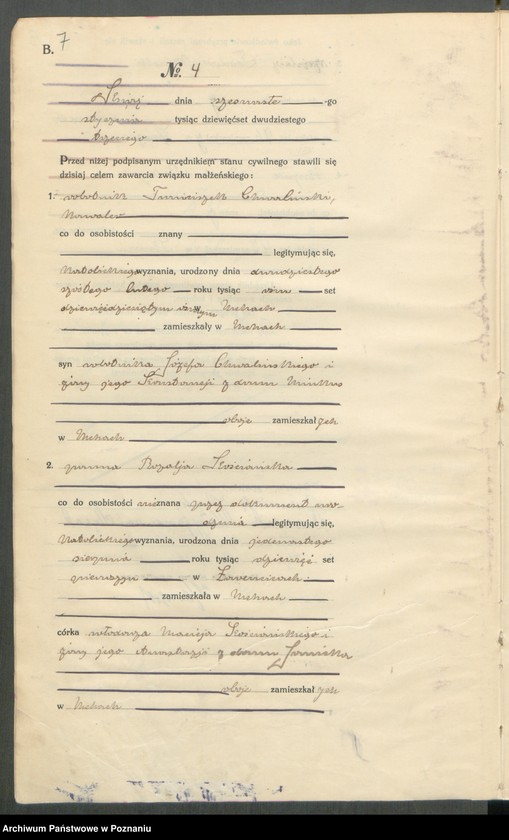 B. 7
No. 4
dnia szesnaste -go
stycznia tysiąc dziewięćset dwudziestego
trzeciego
Przed niżej podpisanym urzędnikiem stanu cywilnego stawili się
dzisiaj celem zawarcia związku małżeńskiego:
1. robotnik Franciszek Chwaliński,
kawaler
co do osobistości znany
legitymując się,
katolickiego wyznania, urodzony dnia dwudziestego
szóstego lutego roku tysiąc ośm set
dziewięćdziesiątym ósmym w Mchach
zamieszkały w Mchach
syn robotnika Józefa Chwalińskiego i
żony jego Konstancji z domu
oboje zamieszkałych
w Mchach
2. panna Rozalja Kościańska
co do osobistości nieznana przez dokument uro-
dzenia legitymując się,
katolickiego wyznania, urodzona dnia jedenastego
sierpnia roku tysiąc dziewięć set
pierwszym w
zamieszkała w Mchach
córka włodarza Macieja Kościańskiego i
żony jego z domu
oboje zamieszkałych
w Mchach
Archiwum Państwowe w Poznaniu